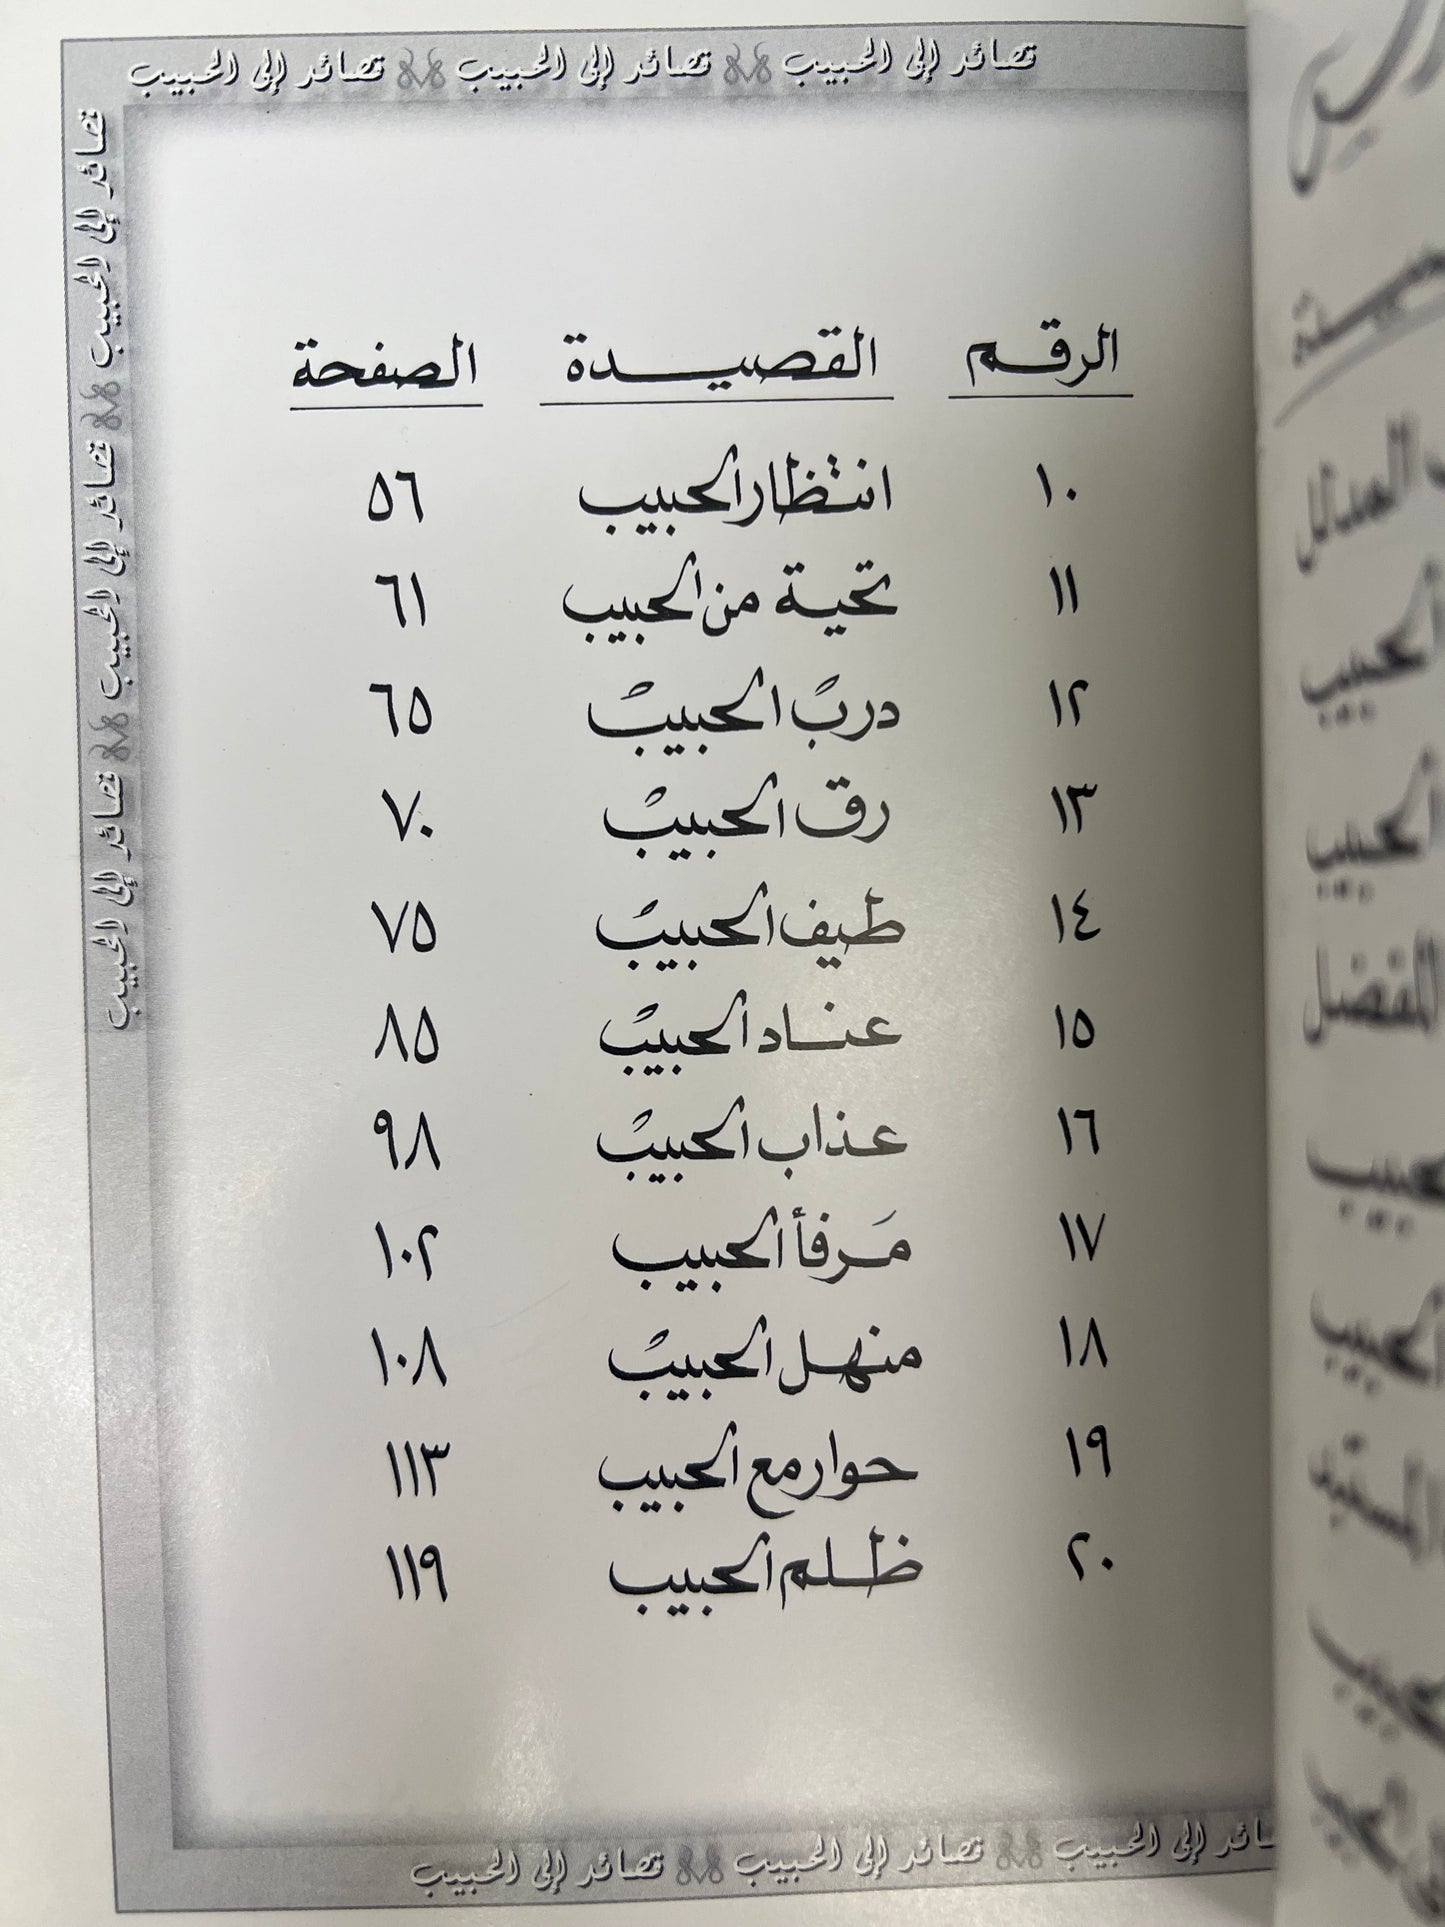 قصائد إلى الحبيب قصائد إلى الحبيب قصائد إلى الحبيب
قصائد إلى الحبيب قصائد إلى الحبيب قصائد إلى الحبيب
الرقم القصيدة الصفحة
١٠ انتظار الحبيب ٥٦
١١ تحية من الحبيب ٦١
١٢ دربُ الحبيبُ ٦٥
١٣ رق الحبيبُ ٧٠
١٤ طيف الحبيبُ ٧٥
١٥ عناد الحبيبُ ٨٥
١٦ عذاب الحبيبُ ٩٨
١٧ مَرفأ الحبيب ١٠٢
١٨ منهل الحبيبُ ١٠٨
١٩ حوار مع الحبيب ١١٣
٢٠ ظلم الحبيب ١١٩
إلى الحبيب قصائد إلى الحبيب قصائد إلى الحبيب